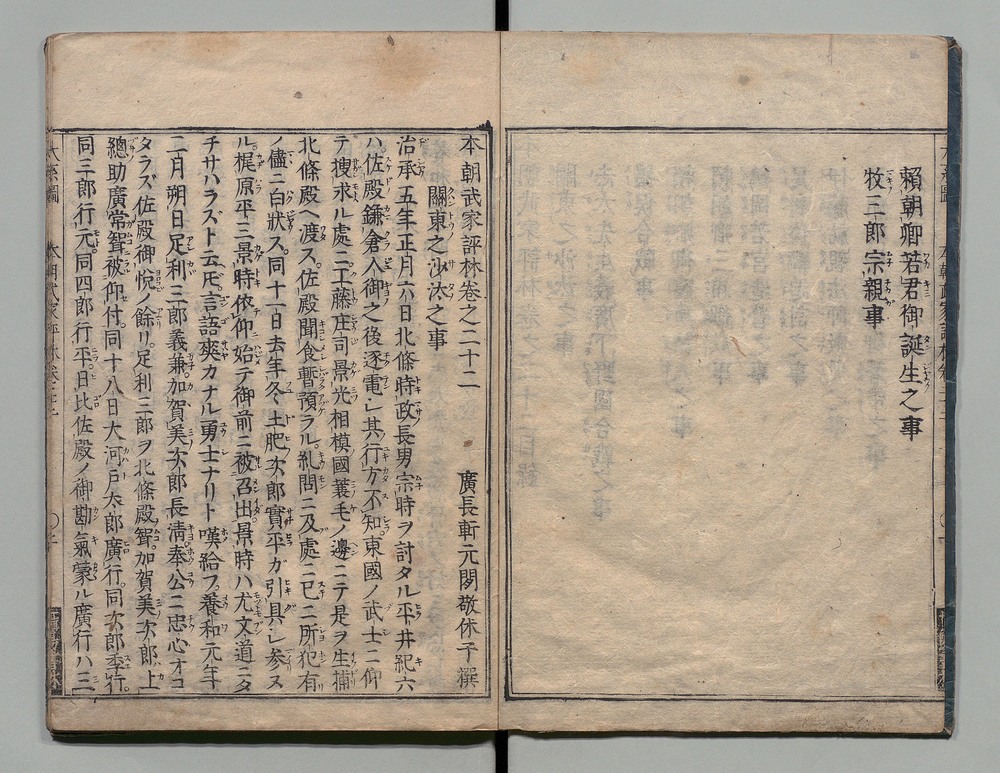 賴朝卿若君御誕生之事
牧三郎宗親事
本朝武家評林卷之二十二
廣長軒元閑敬休子撰
關東之沙汰之事
治承五年正月六日北條時政長男宗時ヲ討タル平井紀六
ハ佐殿鎌倉入御之後逐電シ其行方不知東國ノ武士ニ仰
テ搜求ル處ニ工藤庄司景光相模國蓑毛ノ邊ニテ是ヲ生捕
北條殿ヘ渡ス。佐殿聞食暫預ラル。糺問ニ及處ニ已ニ所犯有
ノ儘ニ白狀ス。同十一日去年冬土肥次郎實平ガ引具シ參ヌ
ル。梶原平三景時依仰始テ御前ニ被召出景時ハ尤文道ニタ
チサハラズト云ドモ言語爽カナル勇士ナリト嘆給フ。養和元年
二月朔日足利三郎義兼。加賀美次郎長淸奉公ニ忠心オコ
タラズ佐殿御悅ノ餘リ。足利三郎ヲ北條殿聟。加賀美次郎ハ上
總助廣常聟被仰付。同十八日大河戶太郎廣行。同次郎季行。
同三郎行元。同四郎行平。日比佐殿ノ御勘氣蒙ル廣行ハ三